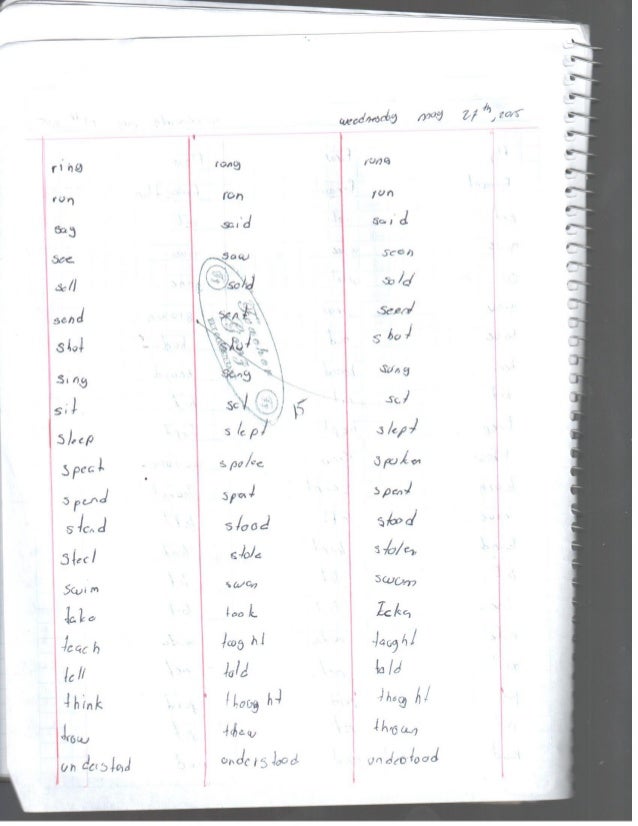 weednesday may 27th, 2015
ring rang rung
run ran run
say said said
see saw seen
sell sold sold
send sent seend
shot shut shot
sing sang sung
sit sat sat
sleep slept slept
speak spolee spoken
spend spent spent
stand stood stood
steel stole stolen
swim swan swum
take took
teach taught taught
tell told told
think thought thought
trow thew thrown
understand understood undestood
Teacher
15